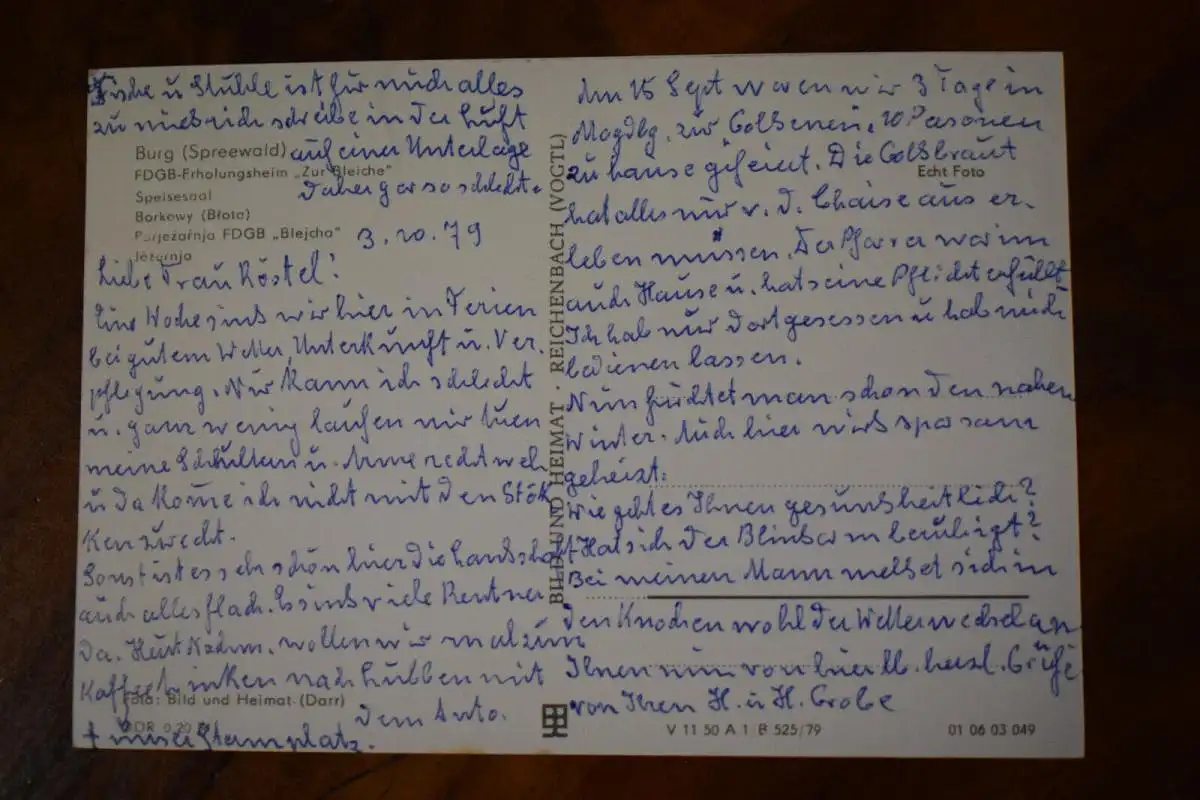 Tische u Stühle ist für mich alles
zu niedrich schreibe in der Luft
auf einer Unterlage
daher gar so schlecht.
Burg (Spreewald)
FDGB-Erholungsheim „Zur Bleiche“
Speisesaal
Borkowy (Błota)
FDGB „Blejcha“
jězarnja
3.10.79
Liebe Frau Röstel!
Eine Woche sind wir hier in Ferien
bei gutem Wetter, Unterkunft u. Ver-
pflegung. Nur kann ich schlecht
u. ganz wenig laufen mir tuen
meine Schultern u. Arme recht weh
u da kome ich nicht mit den Stök
ken zurecht.
Sonst ist es sehr schön hier die Landschaft
auch alles flach. Es sind viele Rentner
da. Heut Nachm. wollen wir mal zum
Kaffeetrinken nach Lübben mit
dem Auto.
+ unser Stammplatz.
Foto: Bild und Heimat (Darr)
BILD UND HEIMAT · REICHENBACH (VOGTL)
Am 15 Sept waren wir 3 Tage in
Magdbg. zur Goldsenen, 10 Pasonen
zu hause gefeiert. Die Goldbraut
Echt Foto
hat alles nur v. d. Chaise aus er-
leben müssen. Der Pfarrer war im
auch Hause u. hat seine Pflicht erfüllt
Ich hab nur dort gesessen u hab mich
bedienen lassen.
Nun fürchtet man schon den nahen
Winter. Auch hier wird sparsam
geheizt.
Wie geht es Ihnen gesundheitlich?
Hat sich der Blinddarm beruhigt?
Bei meinen Mann meldet sich in
den Knochen wohl der Wetterwechsel an
Ihnen nun von hier lb. herzl. Grüße
von Ihren H. u H. Grobe
V 11 50 A 1 B 525/79
01 06 03 049